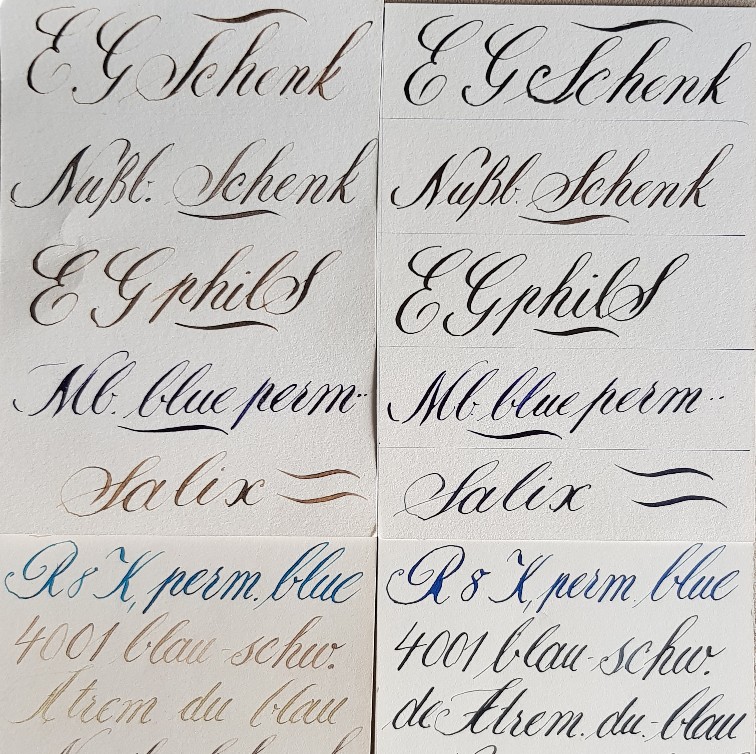 E G Schenk
Nußb. Schenk
E G phil S
Mb. blue perm..
Salix
R & K, perm. blue
4001 blau-schw.
Atrem du blau
E G Schenk
Nußb. Schenk
E G phil S
Mb. blue perm..
Salix
R & K, perm. blue
4001 blau-schw.
de Atrem. du.-blau